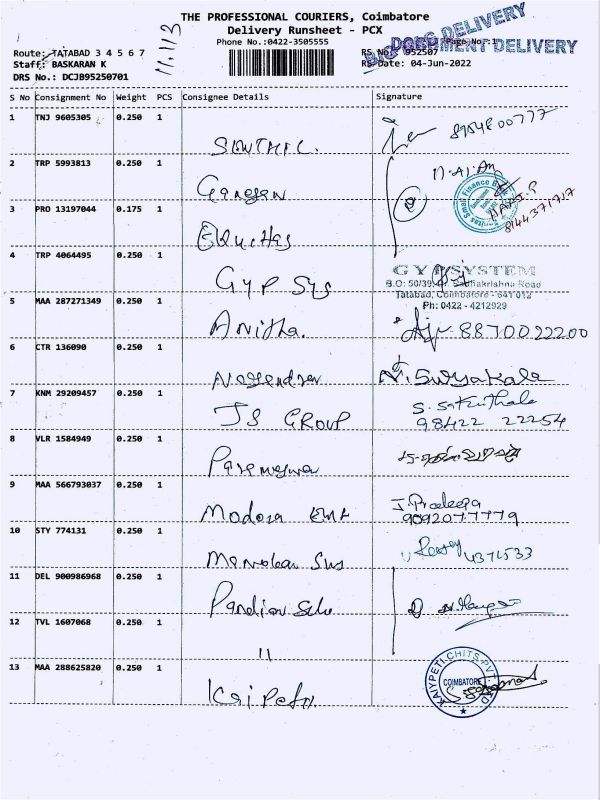 THE PROFESSIONAL COURIERS, Coimbatore
Delivery Runsheet - PCX
Phone No.:0422-3505555
DOCUMENT DELIVERY
Page No.:1
Route: TATABAD 3 4 5 6 7
RS No: 952507
Staff: BASKARAN K
RS Date: 04-Jun-2022
DRS No.: DCJB95250701
11.1/3
S No Consignment No Weight PCS Consignee Details Signature
1 TNJ 9605305 0.250 1 8754800777
2 TRP 5993813 0.250 1 Ganesan
3 PRO 13197044 0.175 1 Equitas 8144371717
4 TRP 4064495 0.250 1 GYP Sys
GYP SYSTEM
Radhakrishna Road
Tatabad, Coimbatore - 641 012
Ph: 0422 - 4212929
5 MAA 287271349 0.250 1 Anitha. 8870022200
6 CTR 136090 0.250 1 Nagendran N. Suryakala
7 KNM 29209457 0.250 1 JS GROUP S. Sakunthala
98422 22254
8 VLR 1584949 0.250 1
9 MAA 566793037 0.250 1 J. Pradeepa
9092077779
10 STY 774131 0.250 1 4371533
11 DEL 900986968 0.250 1 Pandian
12 TVL 1607068 0.250 1 11
13 MAA 288625820 0.250 1
KAIYPETI CHITS PVT LTD
COIMBATORE